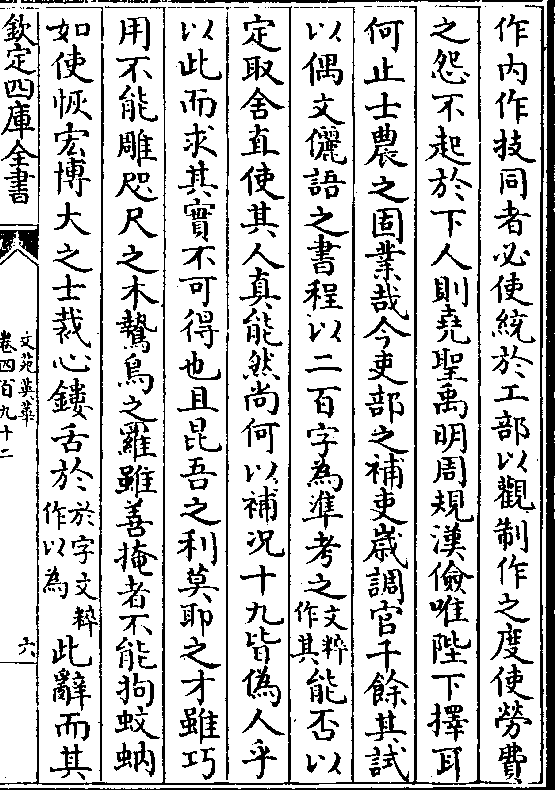 作内作技同者必使統於工部以觀制作之度使勞費
之怨不起於下人則堯聖禹明周規漢儉唯陛下擇耳
何止士農之固業哉今吏部之補吏嵗調官千餘其試
以偶文儷語之書程以二百字為凖考之文粹作其能否以
定取舍直使其人真能然尚何以補况十九皆偽人乎
以此而求其實不可得也且昆吾之利莫耶之才雖巧
用不能雕咫尺之木鷙鳥之羅雖善掩者不能拘蚊蚋
如使恢宏博大之士裁心鏤舌於於字文粹作以為此辭而其
欽定四庫全書
文苑英華
卷四百九十二
六